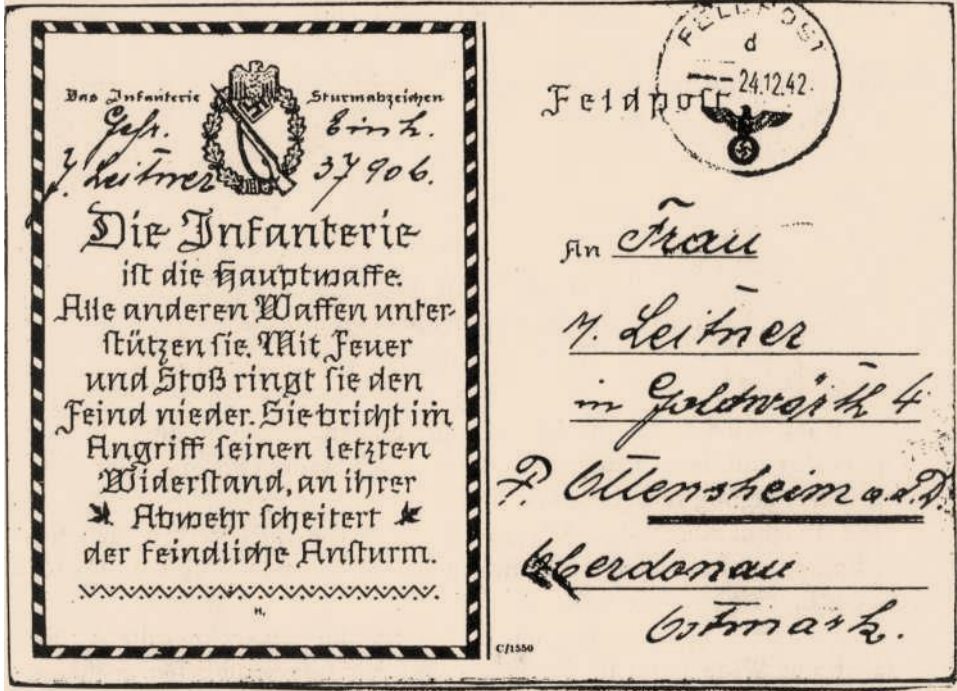 Das Infanterie Sturmabzeichen
Gefr. Einh.
J. Leitner 37906.
Die Infanterie
ist die Hauptwaffe.
Alle anderen Waffen unter-
stützen sie. Mit Feuer
und Stoß ringt sie den
Feind nieder. Sie bricht im
Angriff seinen letzten
Widerstand, an ihrer
Abwehr scheitert
der feindliche Ansturm.
H.
C/1550
FELDPOST
d
24.12.42.
Feldpost
An Frau
Leitner
in Goldwörth 4
P. Ottensheim a.d.D.
Oberdonau
Ostmark.